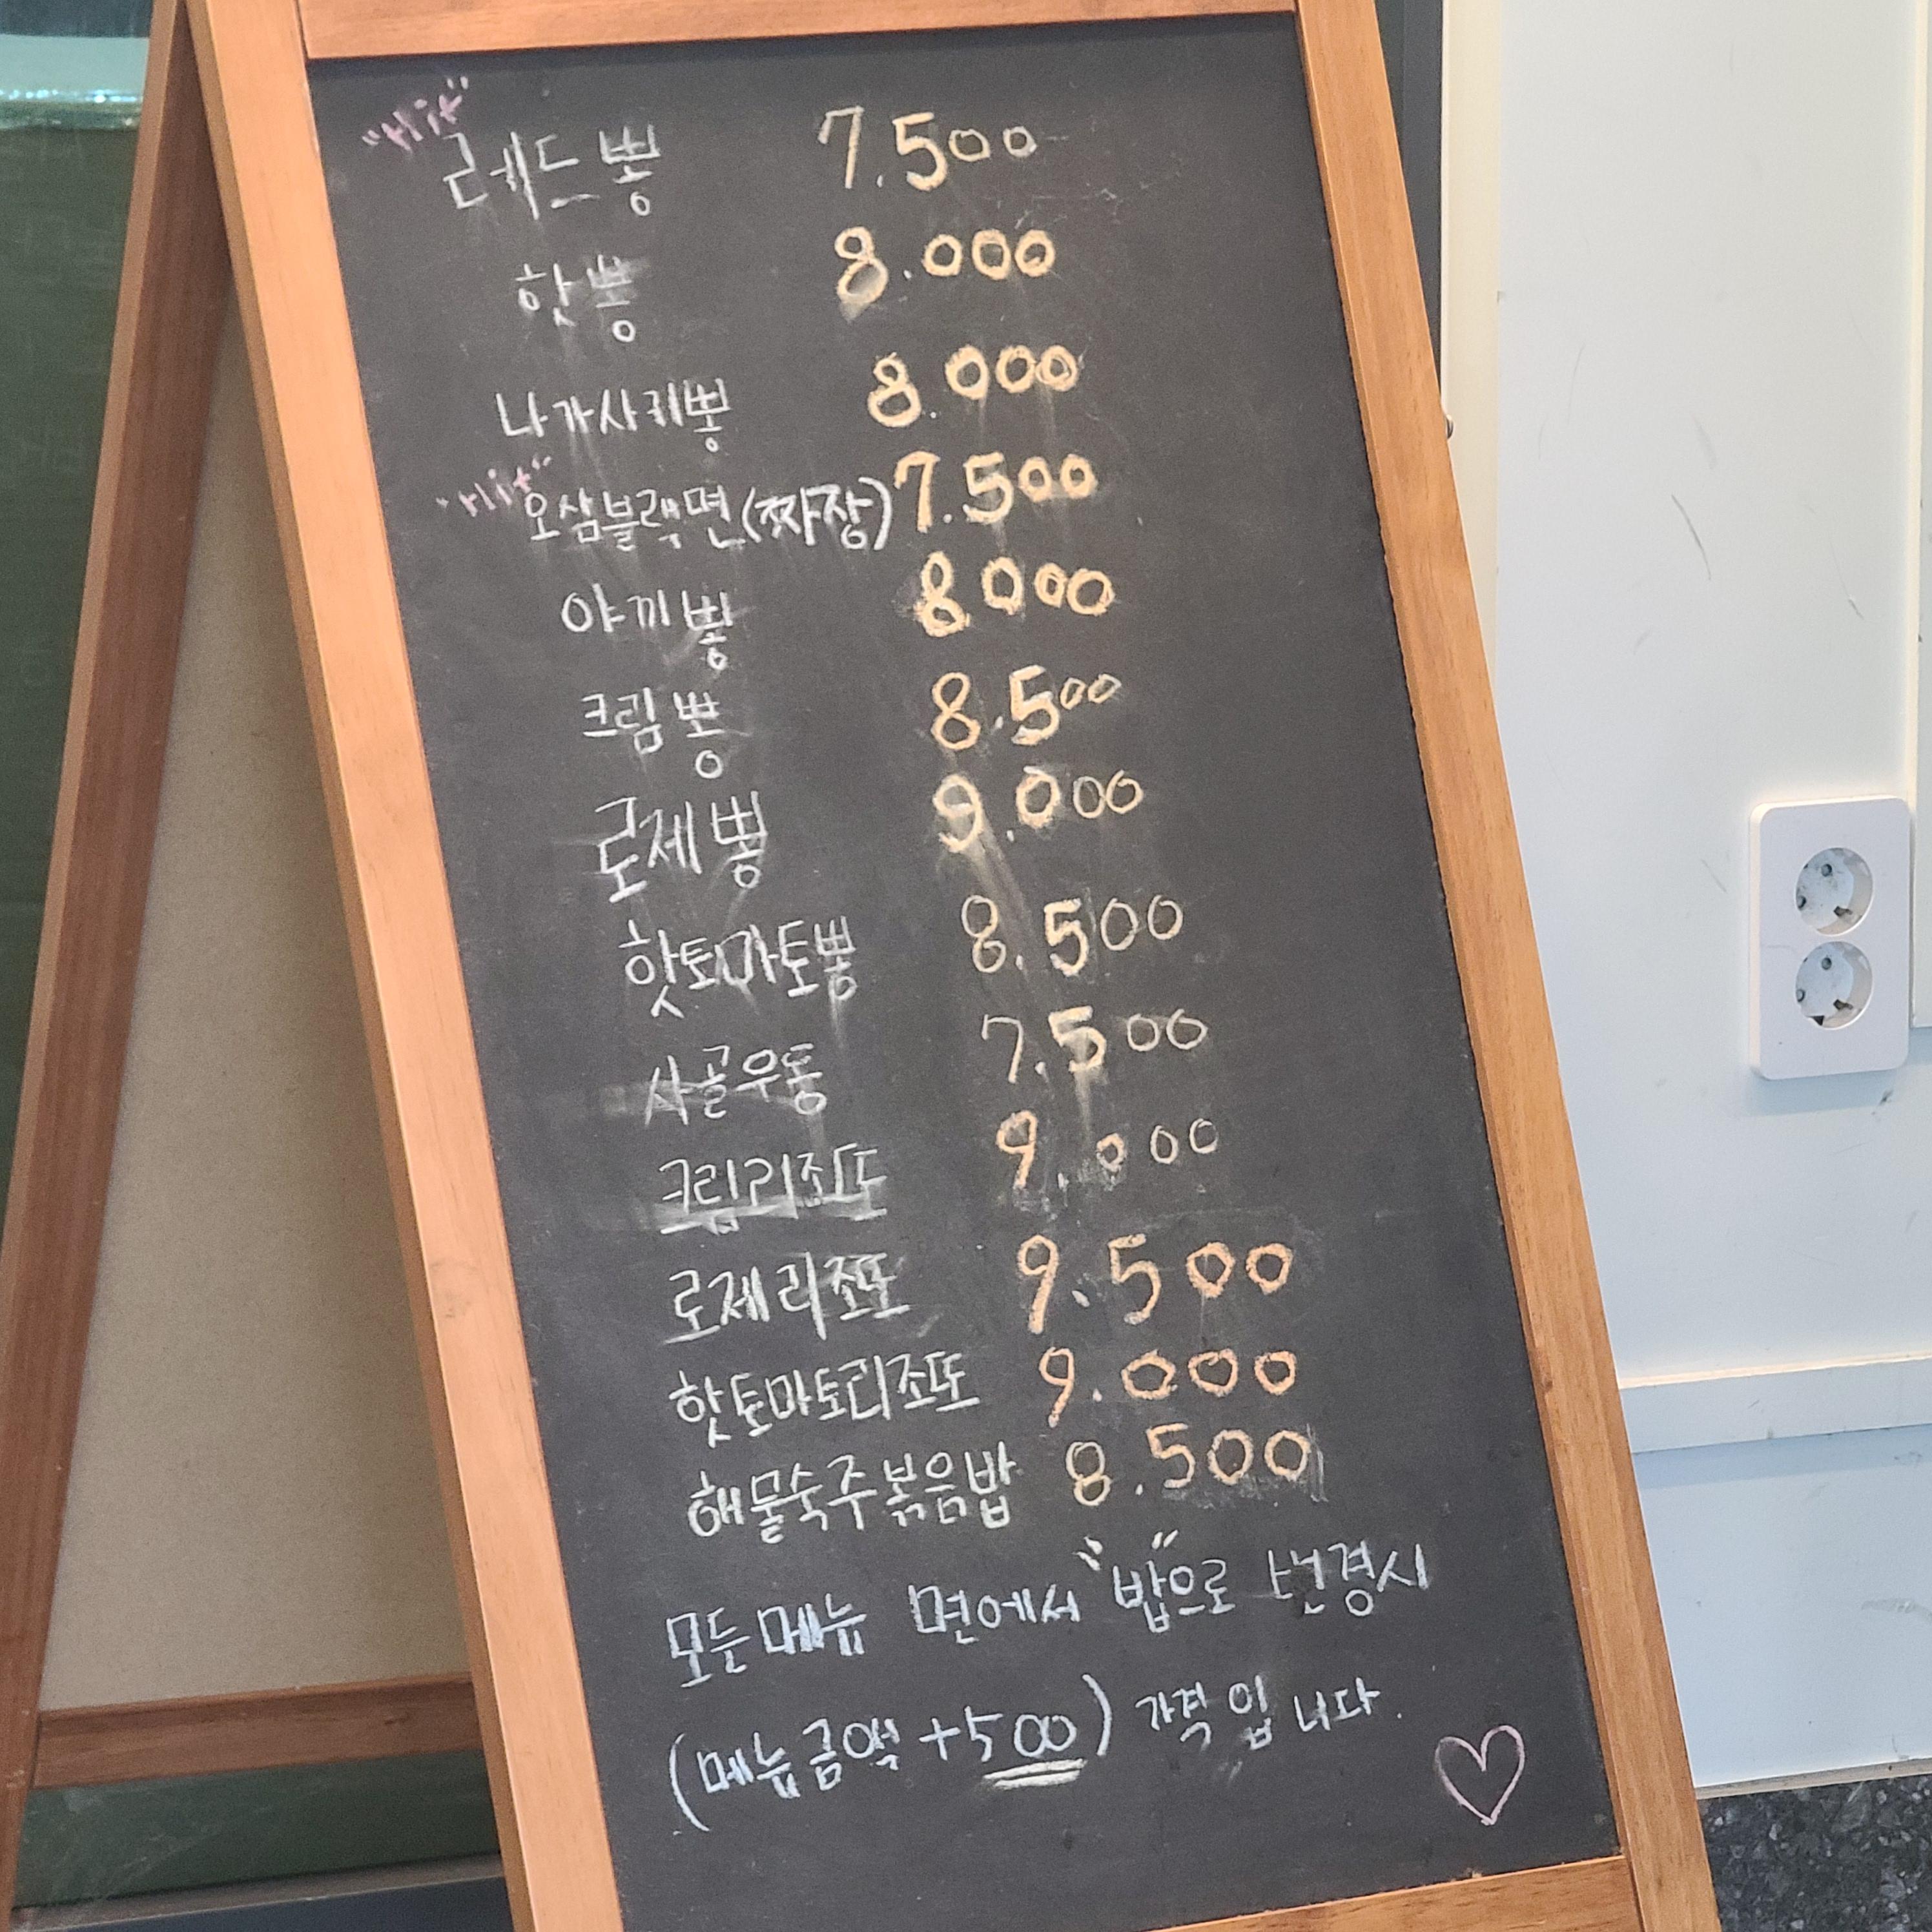 "Hit"
레드뽕 7.500
핫뽕 8.000
나가사키뽕 8.000
"Hit"
오삼블랙면(짜장) 7.500
야끼뽕 8000
크림뽕 8.500
로제뽕 9.000
핫토마토뽕 8.500
사골우동 7.500
크림리조또 9.000
로제리조또 9.500
핫토마토리조또 9.000
해물숙주볶음밥 8.500
모든메뉴 면에서 "밥"으로 변경시
(메뉴금액 +500) 가격입니다.